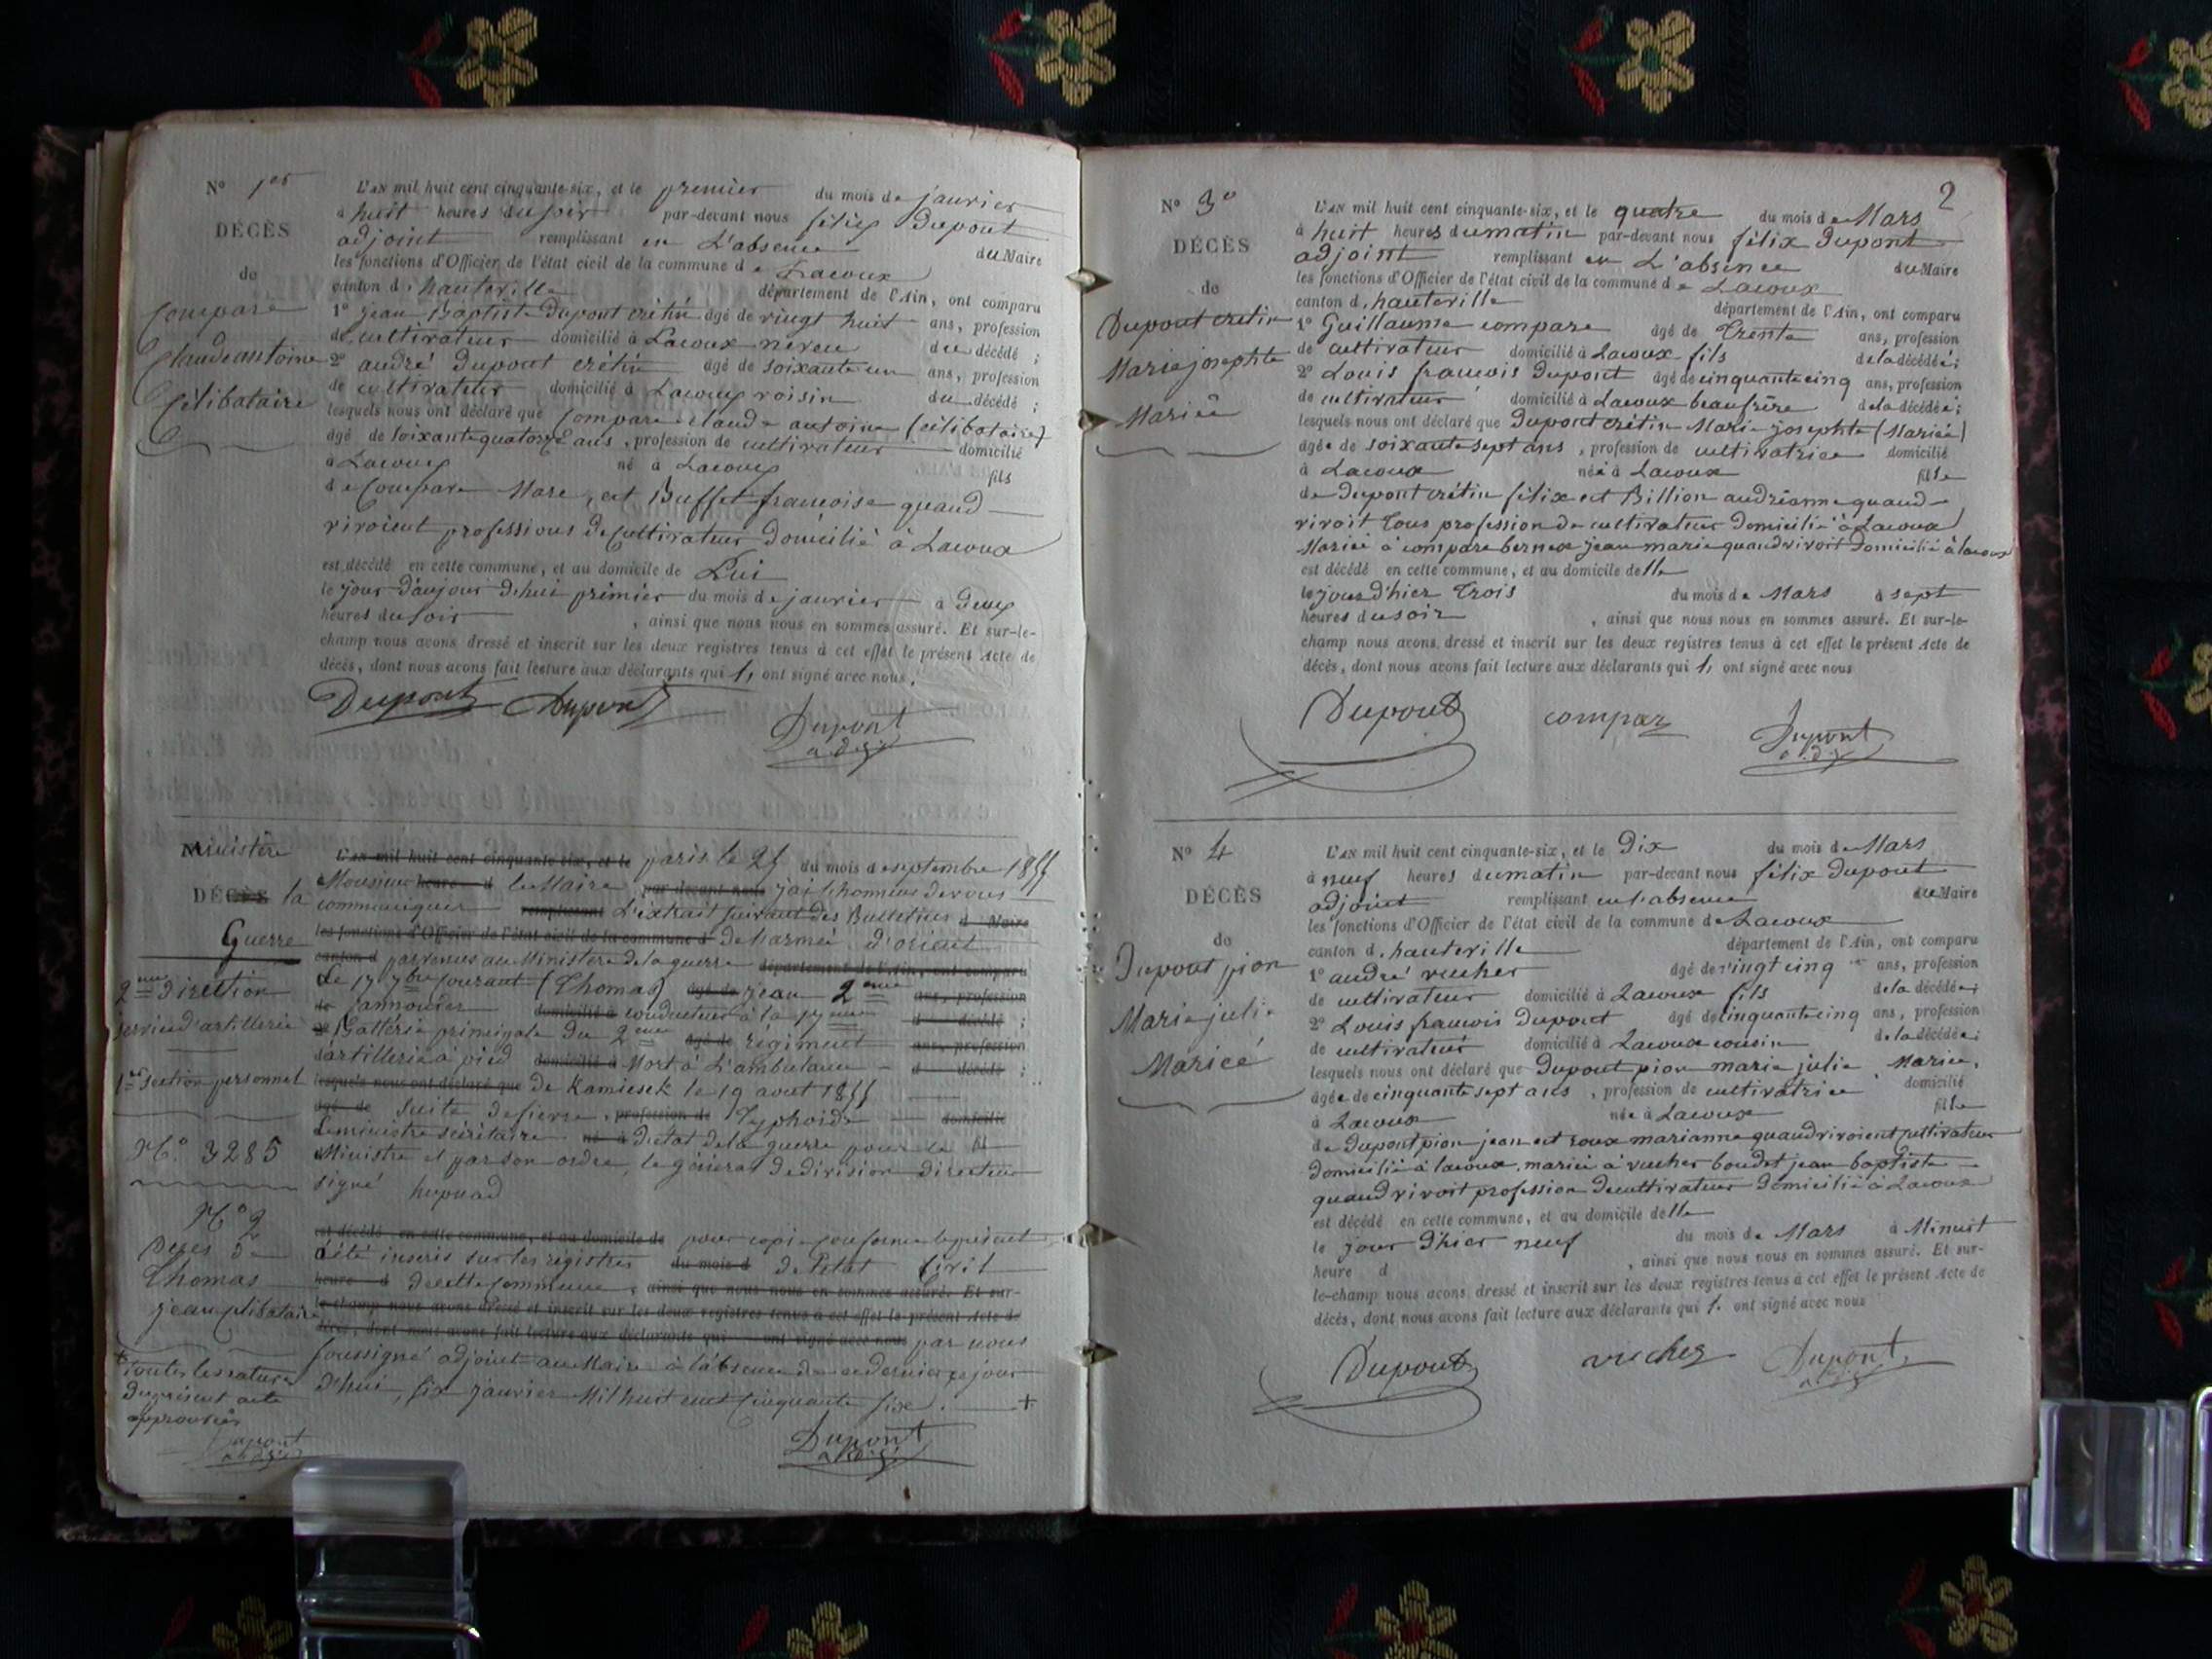 N° 1er
DÉCÈS
de
Compare
Claude antoine
Célibataire
L'AN mil huit cent cinquante-six, et le premier du mois de janvier
à huit heures du soir par-devant nous félix Dupont
adjoint remplissant en L'absence du Maire
les fonctions d'Officier de l'état civil de la commune de Lacoux
canton d. hauteville département de l'Ain, ont comparu
1° jean Baptiste Dupont crétin âgé de vingt huit ans, profession
de cultivateur domicilié à Lacoux neveu du décédé ;
2° andré Dupont crétin âgé de soixante un ans, profession
de cultivateur domicilié à Lacoux voisin du décédé ;
lesquels nous ont déclaré que Compare claude antoine (célibataire)
âgé de soixante quatorze ans, profession de cultivateur domicilié
à Lacoux né à Lacoux fils
de Compare Marc, et Buffet francoise quand
vivoient professions de cultivateur domicilié à Lacoux
est décédé en cette commune, et au domicile de Lui
le jour d'aujour d'hui premier du mois de janvier à deux
heures du soir , ainsi que nous nous en sommes assuré. Et sur-le-
champ nous avons dressé et inscrit sur les deux registres tenus à cet effet le présent Acte de
décès, dont nous avons fait lecture aux déclarants qui 1, ont signé avec nous.
Dupont Dupont
Dupont
adj
Ministère
DÉCÈS la
Guerre
2me Direction
service d'artillerie
1re section personnel
N° 3285
N° 2
Décès de
Thomas
jean célibataire
L'AN mil huit cent cinquante-six, et le paris le 25 du mois de septembre 1855
Monsieur heure d le Maire par-devant nous j'ai l'honneur de vous
communiquer remplissant L'extrait suivant des Bulletins d Maire
les fonctions d'Officier de l'état civil de la commune d De l'armée d'orient
canton d parvenus au Ministère de la guerre département de l'Ain, ont comparu
Le 17 7bre courant (Thomas) âgé de jean 2eme ans, profession
de cannonier domicilié à conducteur à la 17eme d décédé ;
2° Battérie principale du 2eme âgé de régiment ans, profession
d'artillerie à pied domicilié à Mort à L'ambulance d décédé ;
lesquels nous ont déclaré que De Kamiesch le 19 aout 1855
âgé de suite de fievre, profession de Typhoïde domicilié
Le ministre sécrétaire né à D'état de la guerre pour le fil
Ministre et par son ordre, le général de division directeur
signé
est décédé en cette commune, et au domicile de pour copie conforme le présent
a été inscris sur les régistres du mois d de l'état Civil
heure d de cette commune, ainsi que nous nous en sommes assuré. Et sur-
le-champ nous avons dressé et inscrit sur les deux registres tenus à cet effet le présent Acte de
décès, dont nous avons fait lecture aux déclarants qui ont signé avec nous par nous
soussigné adjoint au Maire à l'absence de ce dernier ce jour
d'hui, six janvier Mil huit cent cinquante six. +
+ Toutes les ratures
du présent acte
approuvées
Dupont
adj
Dupont
adj
2
N° 3°
DÉCÈS
de
Dupont cretin
Marie josephte
Mariée
L'AN mil huit cent cinquante-six, et le quatre du mois de Mars
à huit heures du matin par-devant nous félix Dupont
adjoint remplissant en L'absence du Maire
les fonctions d'Officier de l'état civil de la commune de Lacoux
canton d. hauteville département de l'Ain, ont comparu
1° Guillaume compare âgé de Trente ans, profession
de cultivateur domicilié à Lacoux fils de la décédée ;
2° Louis francois Dupont âgé de cinquante cinq ans, profession
de cultivateur domicilié à Lacoux beaufrère de la décédée ;
lesquels nous ont déclaré que Dupont crétin Marie josephte (Mariée)
âgée de soixante sept ans, profession de cultivatrice domicilié
à Lacoux née à Lacoux fille
de Dupont crétin félix et Billion andréanne quand
vivoit Tous profession de cultivateur domicilié à Lacoux
Mariée à compare bernex jean marie quand vivoit domicilié à lacoux
est décédé en cette commune, et au domicile delle
le jour d'hier Trois du mois de Mars à sept
heures du soir , ainsi que nous nous en sommes assuré. Et sur-le-
champ nous avons dressé et inscrit sur les deux registres tenus à cet effet le présent Acte de
décès, dont nous avons fait lecture aux déclarants qui 1, ont signé avec nous
Dupont compar Dupont
adj
N° 4
DÉCÈS
de
Dupont pion
Marie julie
Mariée
L'AN mil huit cent cinquante-six, et le Dix du mois de Mars
à neuf heures du matin par-devant nous félix Dupont
adjoint remplissant en l'absence du Maire
les fonctions d'Officier de l'état civil de la commune de Lacoux
canton d. hauteville département de l'Ain, ont comparu
1° andré vucher âgé de vingt cinq ans, profession
de cultivateur domicilié à Lacoux fils de la décédée ;
2° Louis francois Dupont âgé de cinquante cinq ans, profession
de cultivateur domicilié à Lacoux cousin de la décédée ;
lesquels nous ont déclaré que Dupont pion marie julie Mariée,
âgée de cinquante sept ans, profession de cultivatrice domicilié
à Lacoux née à Lacoux fille
de Dupont pion jean et roux marianne quand vivoient cultivateur
domicilié à lacoux, mariée à vucher boudet jean baptiste
quand vivoit profession de cultivateur domicilié à Lacoux
est décédé en cette commune, et au domicile delle
le jour d'hier neuf du mois de Mars à Minuit
heure d , ainsi que nous nous en sommes assuré. Et sur-
le-champ nous avons dressé et inscrit sur les deux registres tenus à cet effet le présent Acte de
décès, dont nous avons fait lecture aux déclarants qui 1. ont signé avec nous
Dupont vucher Dupont
adj